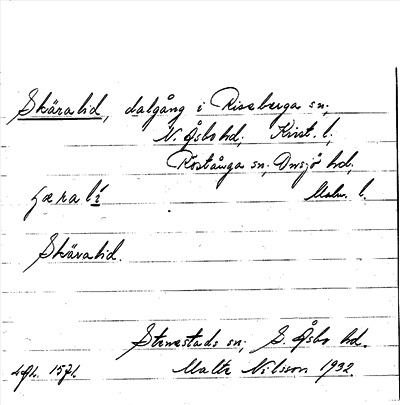 Skäralid, dalgång i Riseberga sn,
N. Åsbo hd, Krist. l;
Röstånga sn, Onsjö hd,
Malm. l.
Skäralid.
Stenestads sn, S. Åsbo hd.
Malte Nilsson 1932.